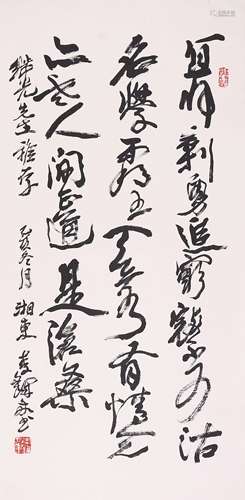 宜將剩勇追窮寇不可沽
名學霸王天若有情天
亦老人間正道是滄桑
继光先生雅存 乙亥冬月 湘東